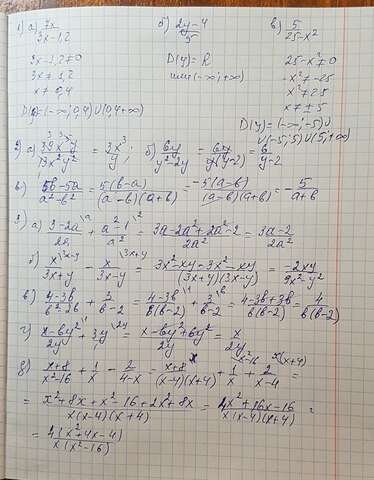 1) а) 7x/(3x-1,2)   б) (2y-4)/5   в) 5/(25-x²)
3x-1,2≠0   D(y)=R   25-x²≠0
3x≠1,2   или(-∞;+∞)   -x²≠-25
x≠0,4   x²≠25
D(y)=(-∞;0,4)∪(0,4;+∞)   x≠±5
D(y)=(-∞;-5)∪
∪(-5;5)∪(5;+∞)
2) а) 39x³y/13x²y² = 3x/y;   б) 6y/(y²-2y) = 6y/(y(y-2)) = 6/(y-2)
в) (5b-5a)/(a²-b²) = 5(b-a)/((a-b)(a+b)) = -5(a-b)/((a-b)(a+b)) = -5/(a+b)
3) а) (3-2a)/2a \a + (a²-1)/a² \2 = (3a-2a²+2a²-2)/2a² = (3a-2)/2a²
б) x/(3x+y) \3x-y - x/(3x-y) \3x+y = (3x²-xy-3x²-xy)/((3x+y)(3x-y)) = -2xy/(9x²-y²)
в) (4-3b)/(b²-2b) + 3/(b-2) = (4-3b)/(b(b-2)) \1 + 3/(b-2) \b = (4-3b+3b)/(b(b-2)) = 4/(b(b-2))
г) (x-6y²)/2y \1 + 3y \2y = (x-6y²+6y²)/2y = x/2y
д) (x+8)/(x²-16) + 1/x - 2/(4-x) = (x+8)/((x-4)(x+4)) \x + 1/x \x²-16 + 2/(x-4) \x(x+4) =
= (x²+8x+x²-16+2x²+8x)/(x(x-4)(x+4)) = (4x²+16x-16)/(x(x-4)(x+4)) =
= 4(x²+4x-4)/(x(x²-16))